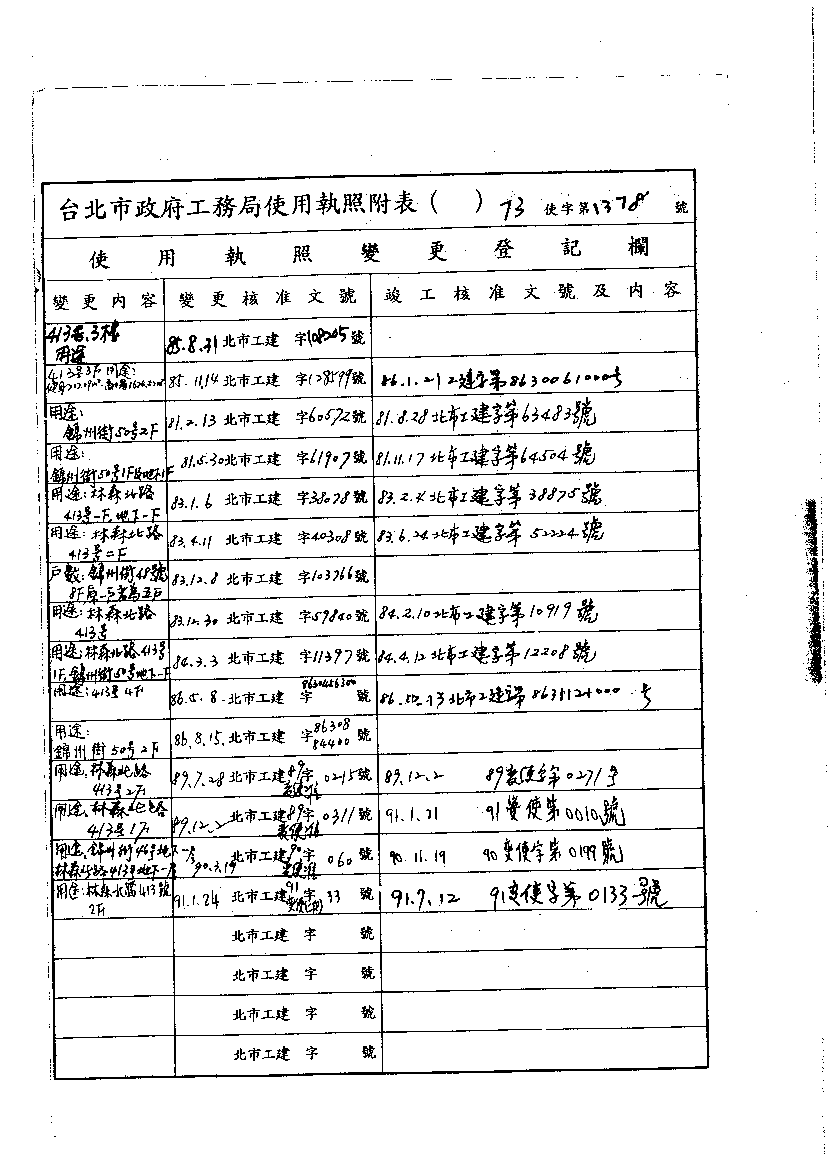 台北市政府工務局使用執照附表（　）73 使字第1378 號
使用執照變更登記欄
變更內容 變更核准文號 竣工核准文號及內容
413号.3樓
用途
85.8.31 北市工建 字108205號
413号3F 用途:
85.11.14 北市工建 字128599號 86.1.21 工建字第8630061000号
用途:
錦州街50号2F
81.2.13 北市工建 字60572號 81.8.28 北市工建字第63483號
用途:
錦州街50号1F及地下1F
81.5.30 北市工建 字61907號 81.11.17 北市工建字第64504號
用途:林森北路
413号一F.地下一F
83.1.6 北市工建 字38078號 83.2.4 北市工建字第38875號
用途:林森北路
413号二F
83.4.11 北市工建 字40308號 83.6.24 北市工建字第52224號
戶數:錦州街48號
8F原一戶變為五戶
83.12.8 北市工建 字103766號
用途:林森北路
413号
83.12.30 北市工建 字59840號 84.2.10 北市工建字第10919號
用途:林森北路413号
1F.錦州街50号地下一F
84.3.3 北市工建 字11397號 84.4.12 北市工建字第12208號
用途:413号4F
86.5.8. 北市工建 字8630456300號 北市工建字第
用途:
錦州街50号2F
86.8.15. 北市工建 字86308
84400 號
用途:林森北路
413号2F
89.7.28 北市工建 89字 變使准 0215號 89.12.2 89變使字第0271号
用途:林森北路
413号1F
89.12.2 北市工建 89字 變使准 0311號 91.1.21 91變使第0010號
用途:錦州街46号地下一F
林森北路413号地下一F
90.3.19 北市工建 90字 變使准 060號 90.11.19 90變使字第0199號
用途:林森北路413號
2F
91.1.24 北市工建 91字 33號 91.7.12 91變使字第0133號
北市工建 字 號
北市工建 字 號
北市工建 字 號
北市工建 字 號